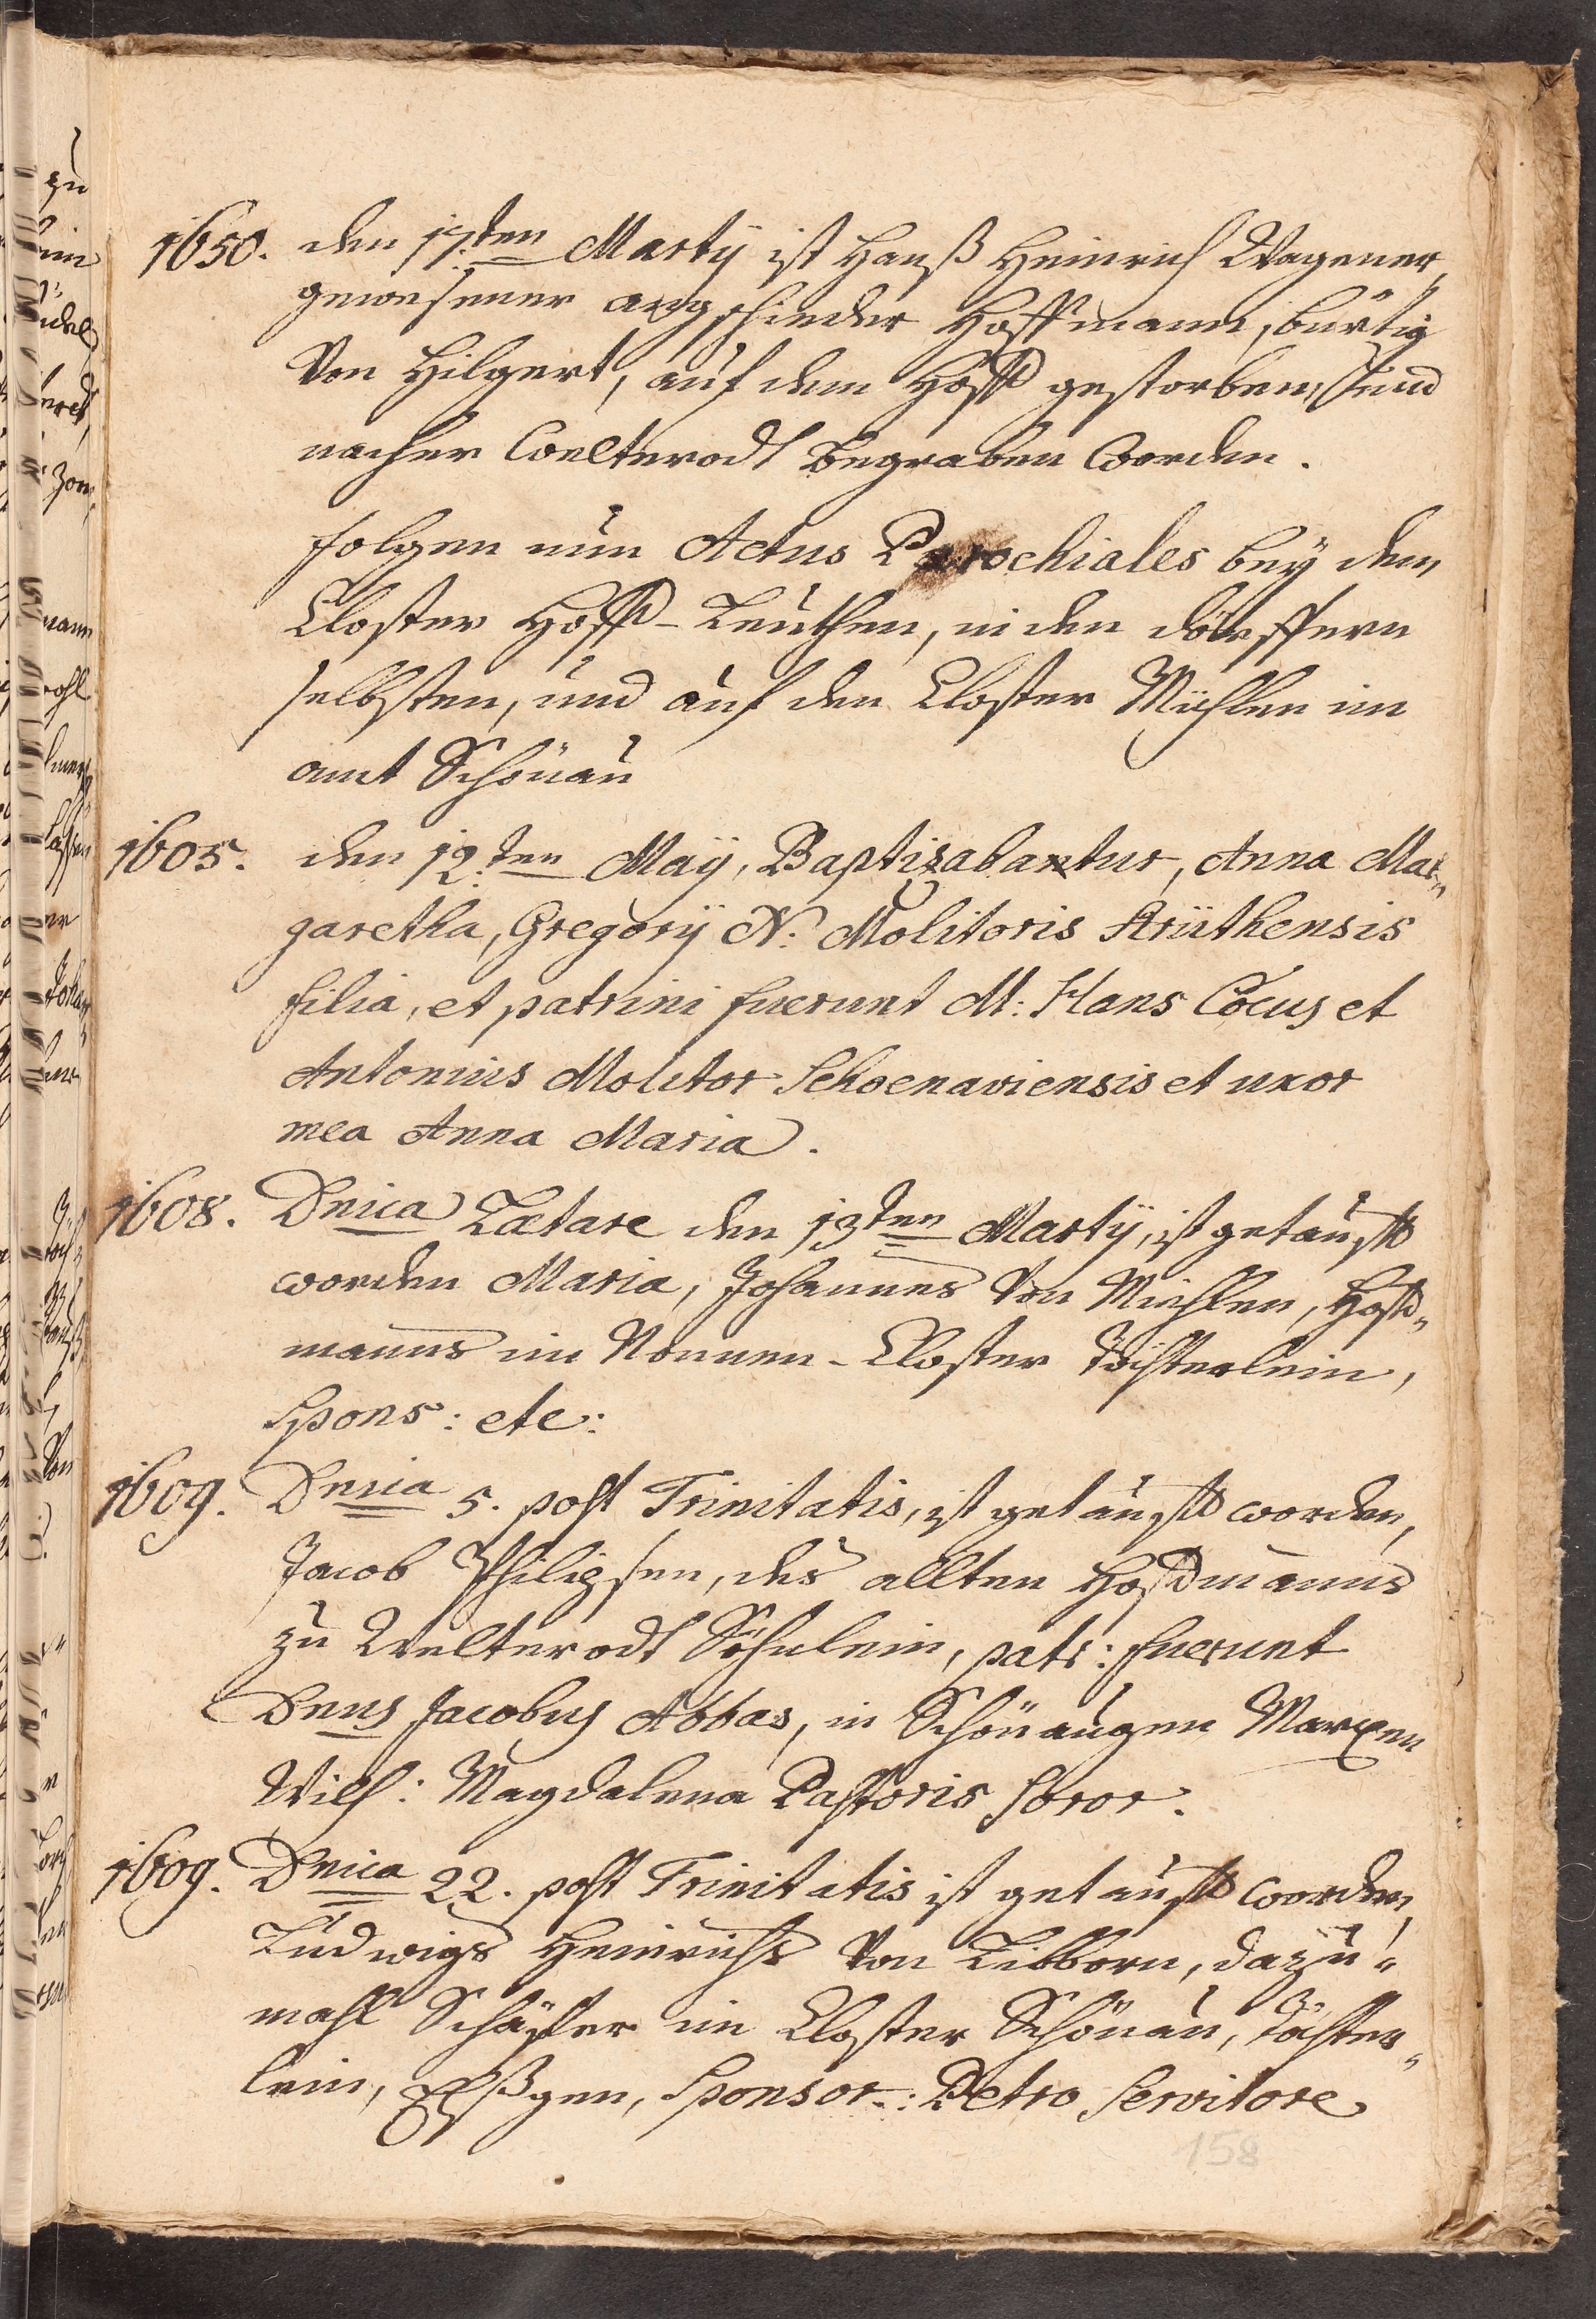 1650. den 17.ten Martÿ ist Hanß Heinrich Wagener,
gewesener angschieder Hoffmann, bürtig
Von Hilgert, auf dem Hoff gestorben, und
nacher Welterodt Begraben Worden.
folgen nun Actus Parochiales beÿ den
Closter Hoff-Leuthen, in den dörffern
selbsten, und auf den Closter Mühlen im
amt Schönau
1605. den 12.ten Maÿ, Baptizabantur, Anna Mar„
garetha, Gregorÿ N: Molitoris Strüthensis
filia, et patrini fuerunt M: Hans Cocus et
Antonius Molitor Schoenaviensis et uxor
mea Anna Maria.
1608. Dnica Lætare den 13ten Martÿ, ist getaufft
worden Maria, Johannes Von Miehlen, Hoff„
manns im Nonnen-Closter Töchterlein,
Spons: etc:
1609. Dnica 5. post Trinitatis, ist getaufft worden,
Jacob Philipsen, des allten Hoffmanns
zu Welterodt Söhnlein, patr: fuerunt
Dnus Jacobus Abbas, in Schönaugen Marxen
Wilh: Magdalena Pastoris Soror.
1609. Dnica 22. post Trinitatis ist getaufft worden
Ludwigs Heinrichs Von Libborn, dazu„
mahl Schäffer im Closter Schönau, Töchter„
lein, Elßgen, Sponsor: Petro Servitore
158